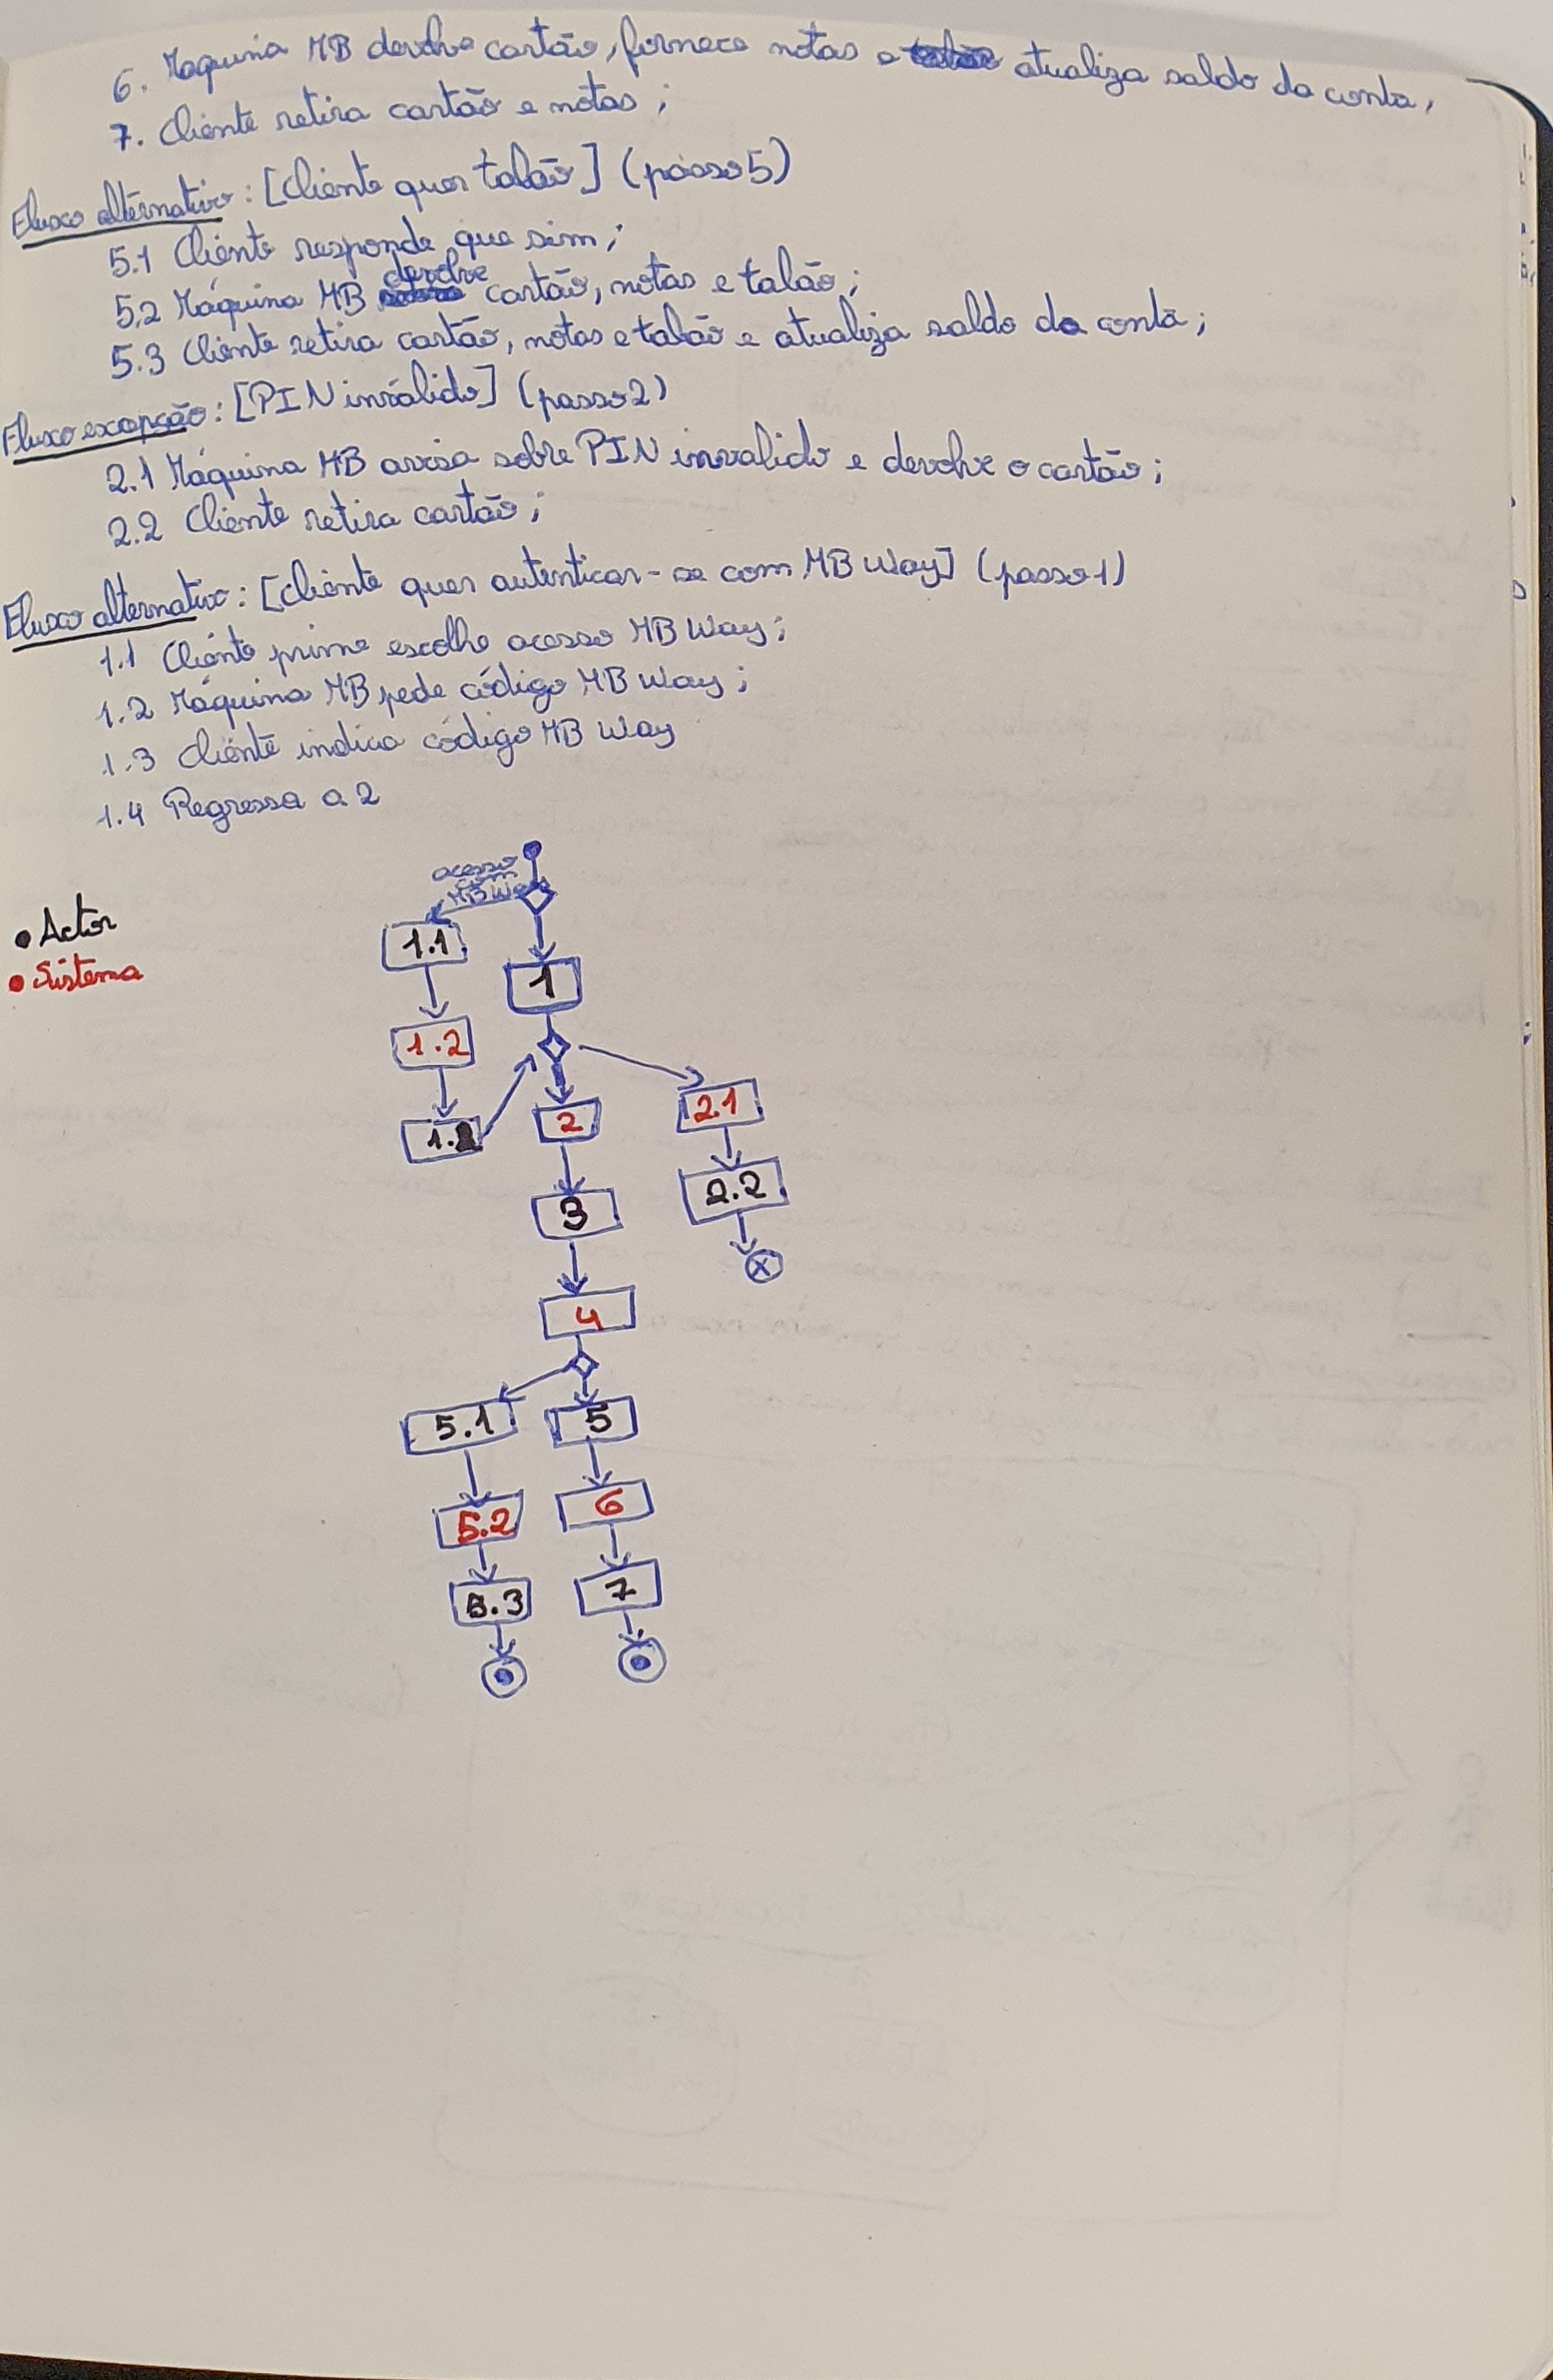 6. Maquina MB devolve cartão, fornece notas e atualiza saldo da conta,
7. Cliente retira cartão e notas;
Fluxo alternativo: [Cliente quer talão] (passo 5)
5.1 Cliente responde que sim;
5.2 Máquina MB devolve cartão, notas e talão;
5.3 Cliente retira cartão, notas e talão e atualiza saldo da conta;
Fluxo excepção: [PIN inválido] (passo 2)
2.1 Máquina MB avisa sobre PIN invalido e devolve o cartão;
2.2 Cliente retira cartão;
Fluxo alternativo: [Cliente quer autenticar-se com MB Way] (passo 1)
1.1 Cliente prime escolhe acesso MB Way;
1.2 Máquina MB pede código MB Way;
1.3 Cliente indica código MB Way
1.4 Regressa a 2
acesso
com
MB Way
• Actor
• Sistema
1.1
1
1.2
2.1
2
1.
2.2
3
4
5.1
5
5.2
6
5.3
7